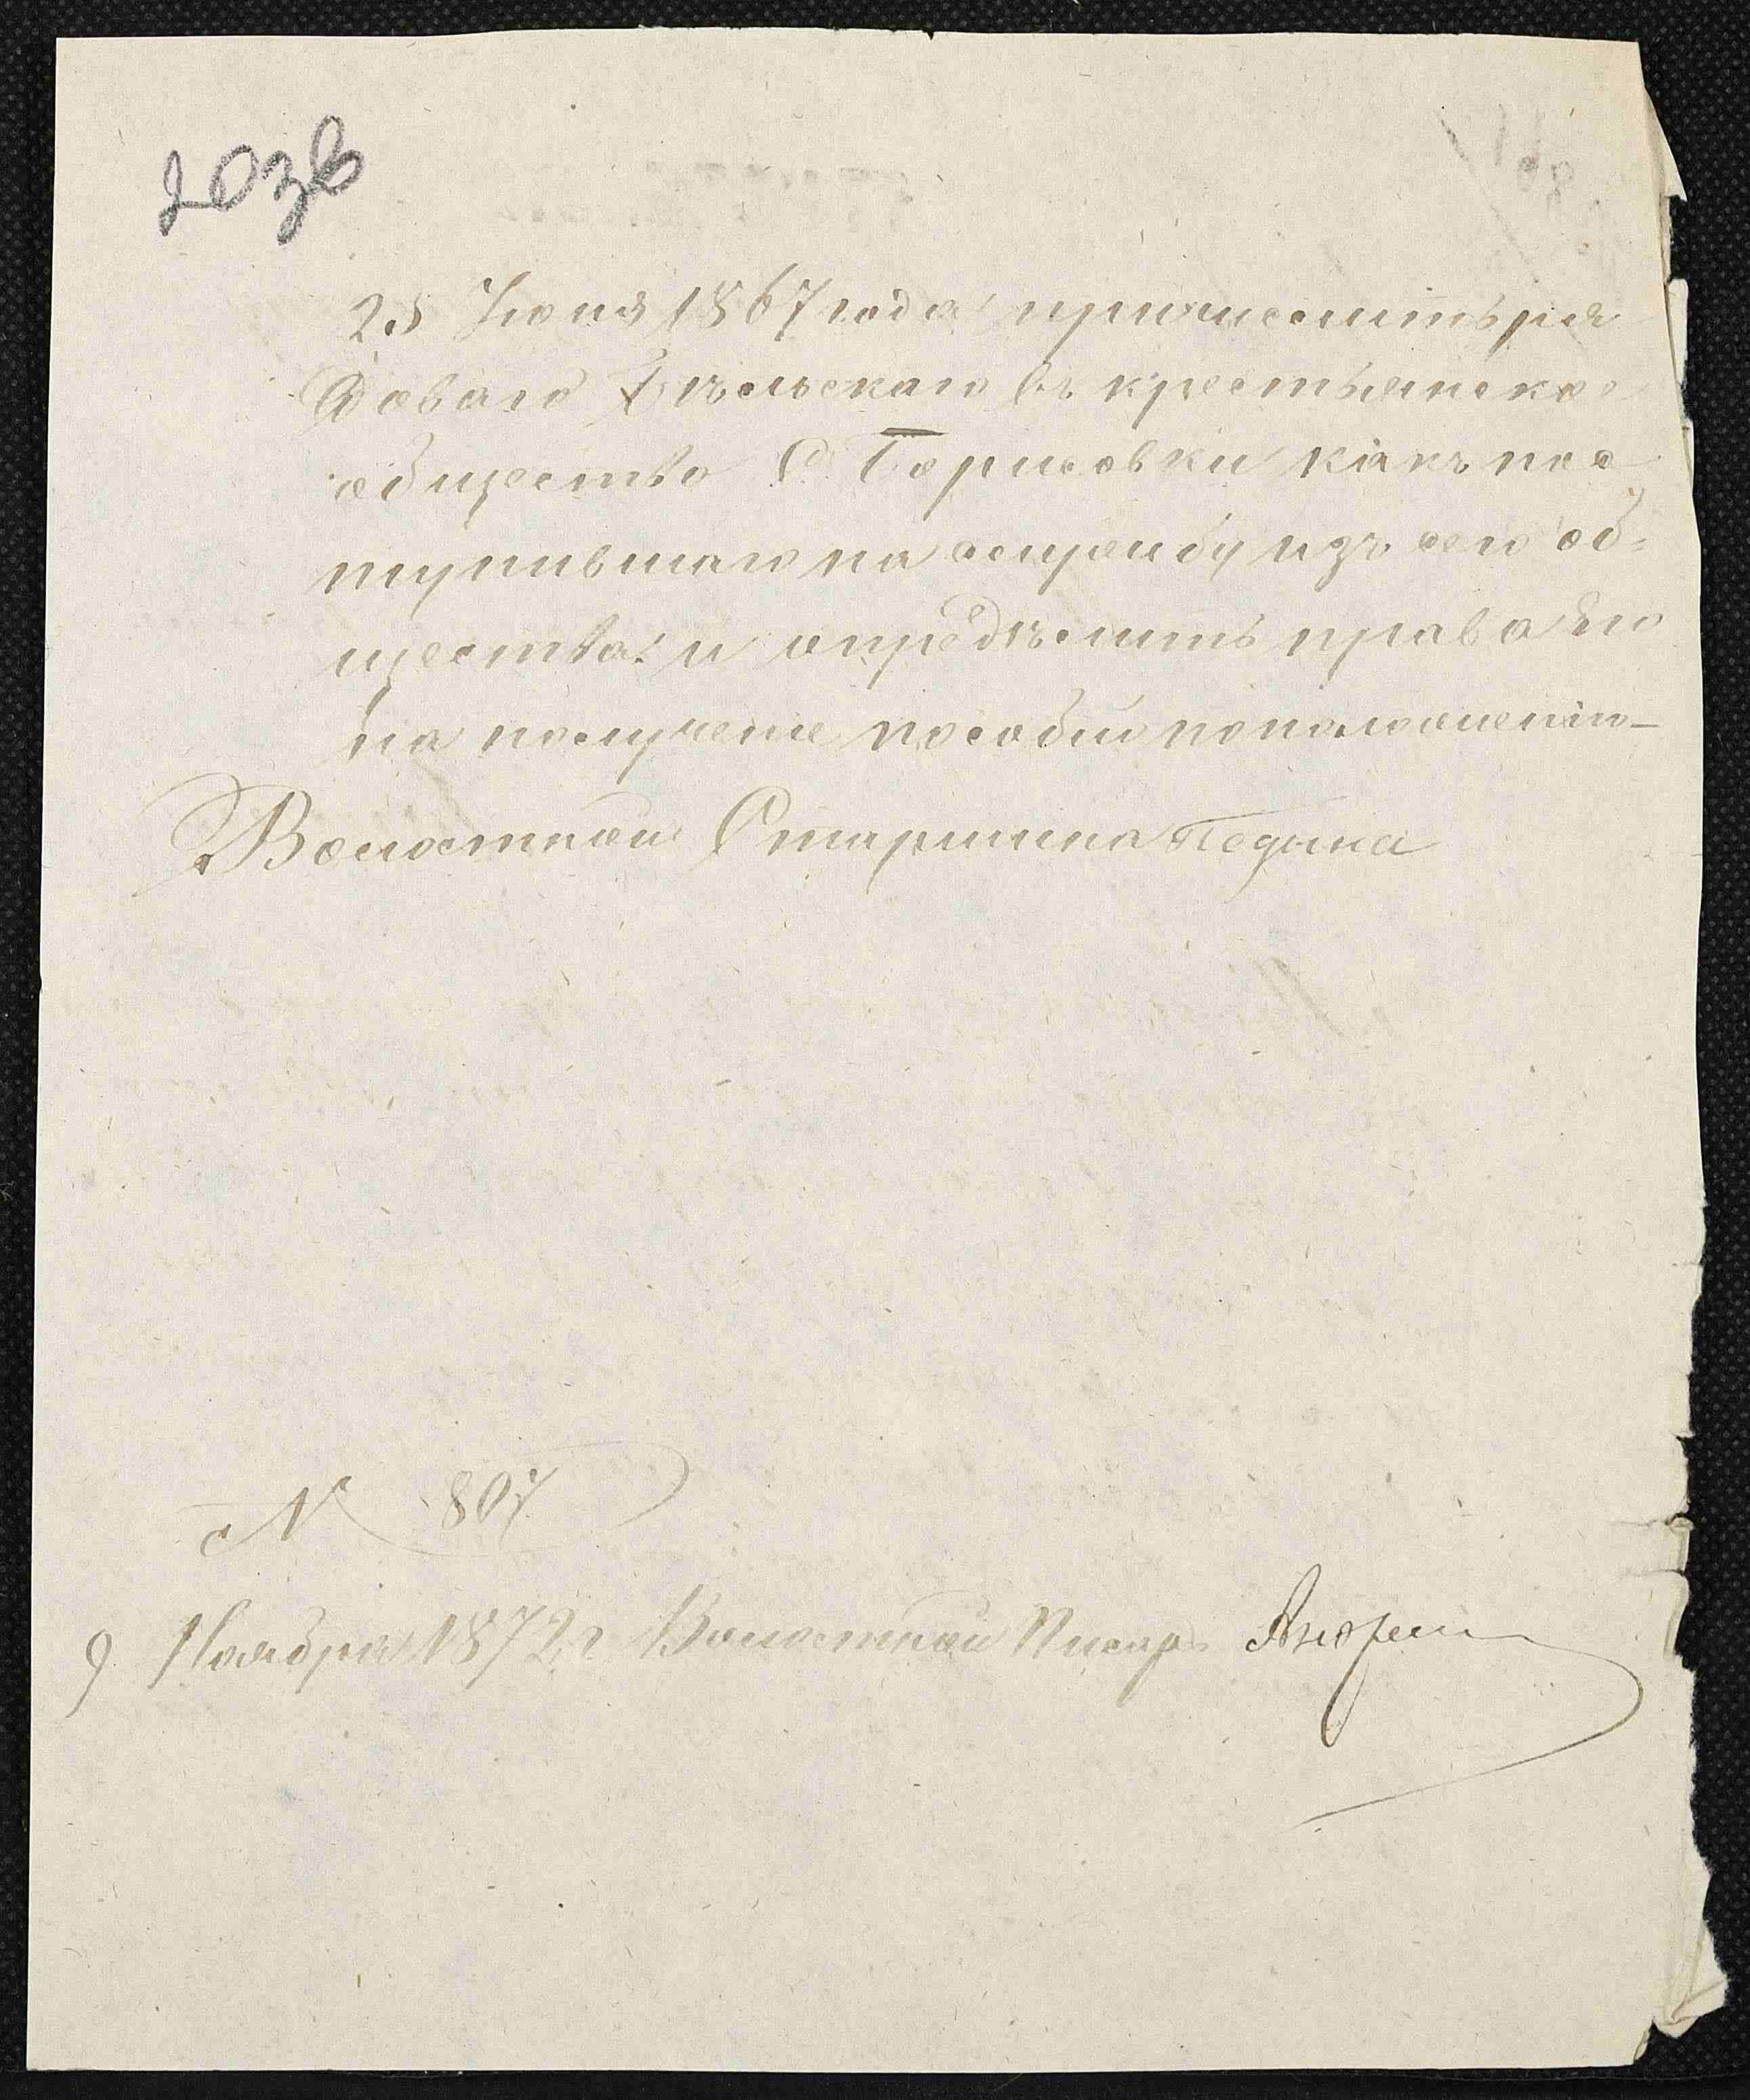 203в
25 Іюня 1867 года причислить ря
доваго Бѣльскаго въ крестьянское
общество С. Борисовки какъ пос
тупившаго на службу изъ сего об=
щества и опредѣлить права его
на получение пособия по положению
Волостной Старшина Педына
№ 807
9 Ноября 1872 г Волостной Писарь